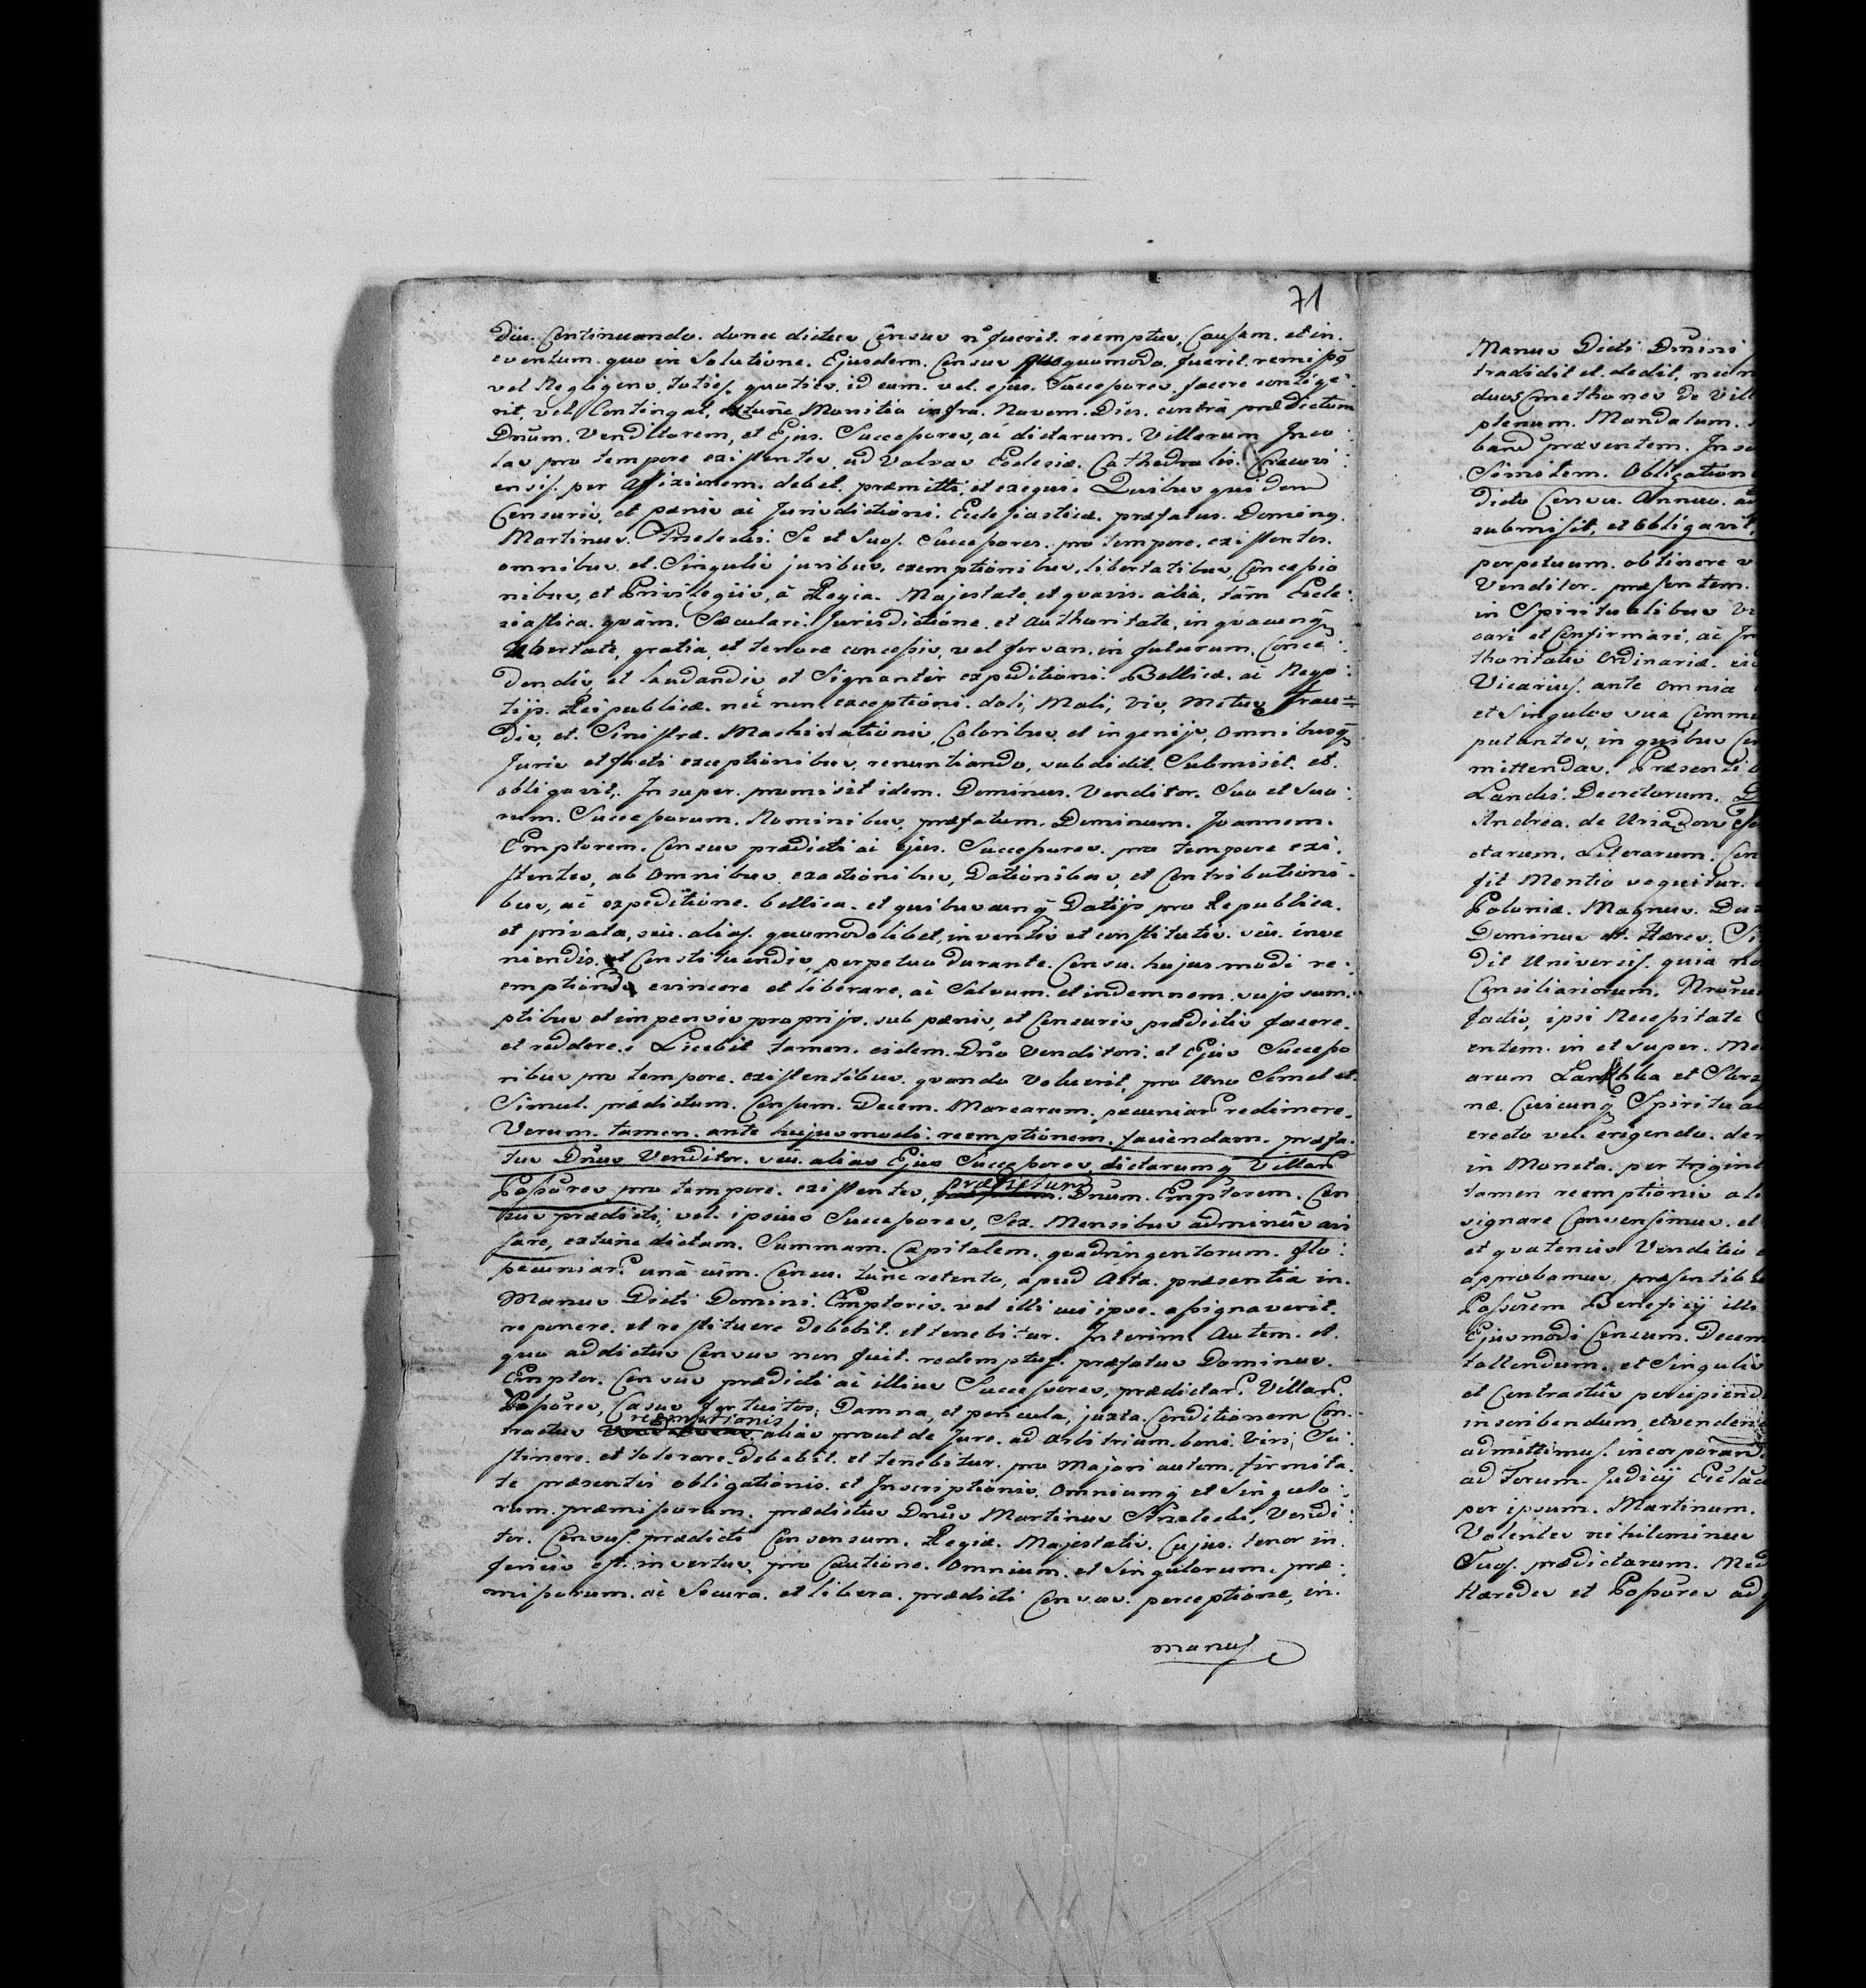 71
diu. Continuando. donec dictus Census nō fuerit. reemptus, Causam. et in.
eventum. quo in Solutione. Ejusdem. Census quoquomodo. fuerit. remissq
vel Negligens, toties. quoties. id eum. vel. ejus. Successores. facere contige:
rit, vel Contingat, extunc Monitio infra. Novem. Dies. contrà prædictum
Dnūm. Venditorem, et Ejus. Successores, ac dictarum. Villarum Inco:
las pro tempore existentes, ad Valvas Eclesiæ. Cathedralis. Cracovi:
ensis. per Affixionem. debet. præmitti, et exequi. Quibus quidem
Censuris, et pænis ac Jurisdictioni. Eclesiasticæ. præfatus. Doming.
Martinus. Se et Suos. Successores. pro tempore. existentes.
omnibus. et. Singulis juribus, exemptionibus, libertatibus, Concessio
nibus, et Privilegiis, à Regia. Majestate, et quavis. alia, tàm Ecle:
siastica. quàm. Sæculari. Jurisdictione. et Authoritate, in quacunq
libertate, gratia, et tenore concessis, vel forsan. in futurum. Conce:
dendis, et laudandis et Signanter expeditioni. Bellicæ. ac Nego:
tijs. Reipublicæ. nec non exceptioni. doli, Mali, vis, Metus Frau=
dis, et. Sinistræ. Machinationis, Coloribus, et ingenijs, omnibusq
Juris et facti exceptionibus, renuntiando, subdidit. Submisit. et.
obligavit. Insuper. promisit idem. Dominus. Venditor. Suo et Suo:
rum. Successorum. Nominibus, præfatum. Dominum. Joannem.
Emptorem. Census prædicti ac ejus. Successores. pro tempore exi.
stentes, ab omnibus. exactionibus, Dationibus, et Contributioni.
bus, ac expeditione. bellica. et quibuscunq Datijs pro Republica.
et privata, seu. alias. quomodolibet, inventis et constitutis. seu. inve
niendis. et Constituendis, perpetuo durante. Censu. hujusmodi re:
emptione evincere et liberare, ac Salvum. et indemnem. suis sum.
ptibus et impensis proprijs. sub pænis, et Censuris, prædictis facere.
et reddere. Licebit tamen. eidem. Dnō Venditori. et Ejus Successo
ribus pro tempore. existentibus. quando Voluerit, pro Uno Semel et.
Simul. prædictum. Censum. Decem. Marcarum. pecuniar redimere.
Verum. tamen. ante hujusmodi. reemptionem. faciendam. præfa.
tus Dnūs Venditor. seu. alias Ejus Successores, dictarumq Villar
Possores pro tempore. existentes, præfatum. Dnūm. Emptorem. Cen
sus prædicti, vel. ipsius Successores, Sex. Mensibus adminūs avi
sare, extunc dictam. Summam. Capitalem. quadringentorum. flo:
pecuniar. unà cum. Censu. tunc retento, apud Acta. præsentia in.
Manus Dicti Domini. Emptoris. vel illi cui ipse. assignaverit.
reponere. et restituere debebit. et tenebitur. Interim Autem. et.
quo addictus Census non fuit. redemptus. præfatus Dominus.
Emptor. Census prædicti ac illius Successores, prædictar. Villar.
Possores, Casus fortuitos. Damna, et pericula, juxta. Conditionem Con.
tractus reemptionis alias prout de Jure. ad arbitrium. boni. Viri, Su:
stinere. et tolerare. debebit. et tenebitur. pro Majori autem. firmita.
te præsentis obligationis. et Inscriptionis. omniumq et singulo:
rum. præmissorum. prædictus Dnūs Martinus Vendi:
tor. Census. prædicti Consensum. Regiæ. Majestatis. Cujus. tenor in.
ferius est. insertus, pro Cautione. omnium. et singulorum. præ:
missorum. ac Secura. et libera. prædicti Census. perceptione, in.
manus
Manus Dicti Dnīni
tradidit et. dedit, nec n
duos Cmethones de Vill
plenum. Mandatum.
band præsentem. In su
Similem. Obligation
dicto Censu. Annuo. ad
submisit, et obligavit,
perpetuum. obtinere v
Venditor. præsentem.
in Spiritualibus Vi
cari et Confirmari, ac In
thoritatis Ordinariæ. eid
Vicarius. ante omnia
et Singulos sua Commu
putantes, in quibus Cen
mittendas. Præsentib
Landis. Decretorum.
Andrea. de Uriadow
ctarum. Literarum. Con
fit Mentio sequitur.
Poloniæ. Magnus. Dux
Dominus et. Hæres. Si
dit Universis. quia no
Consiliariorum. Nrōru
factis, ipsi Necessitate
entem. in et super. Me
arum et
næ. Cuicunq Spiritual
erecto vel. erigendo. der
in Moneta. per trigint
tamen reemptionis ale
signare Consensimus. et
et quatenus Venditio
approbamus, præsentib
Possōrem Beneficij ill
Ejusmodi Censum. Decem
tollendum. et Singulis
et Contractus percipiend
inscribendum, et venden
admittimus. incorporan
ad Forum. Judicij Ecla
per ipsum. Martinum.
Volentes nihilominus
Suos. prædictarum. Med
Hæredes et Possōres ad